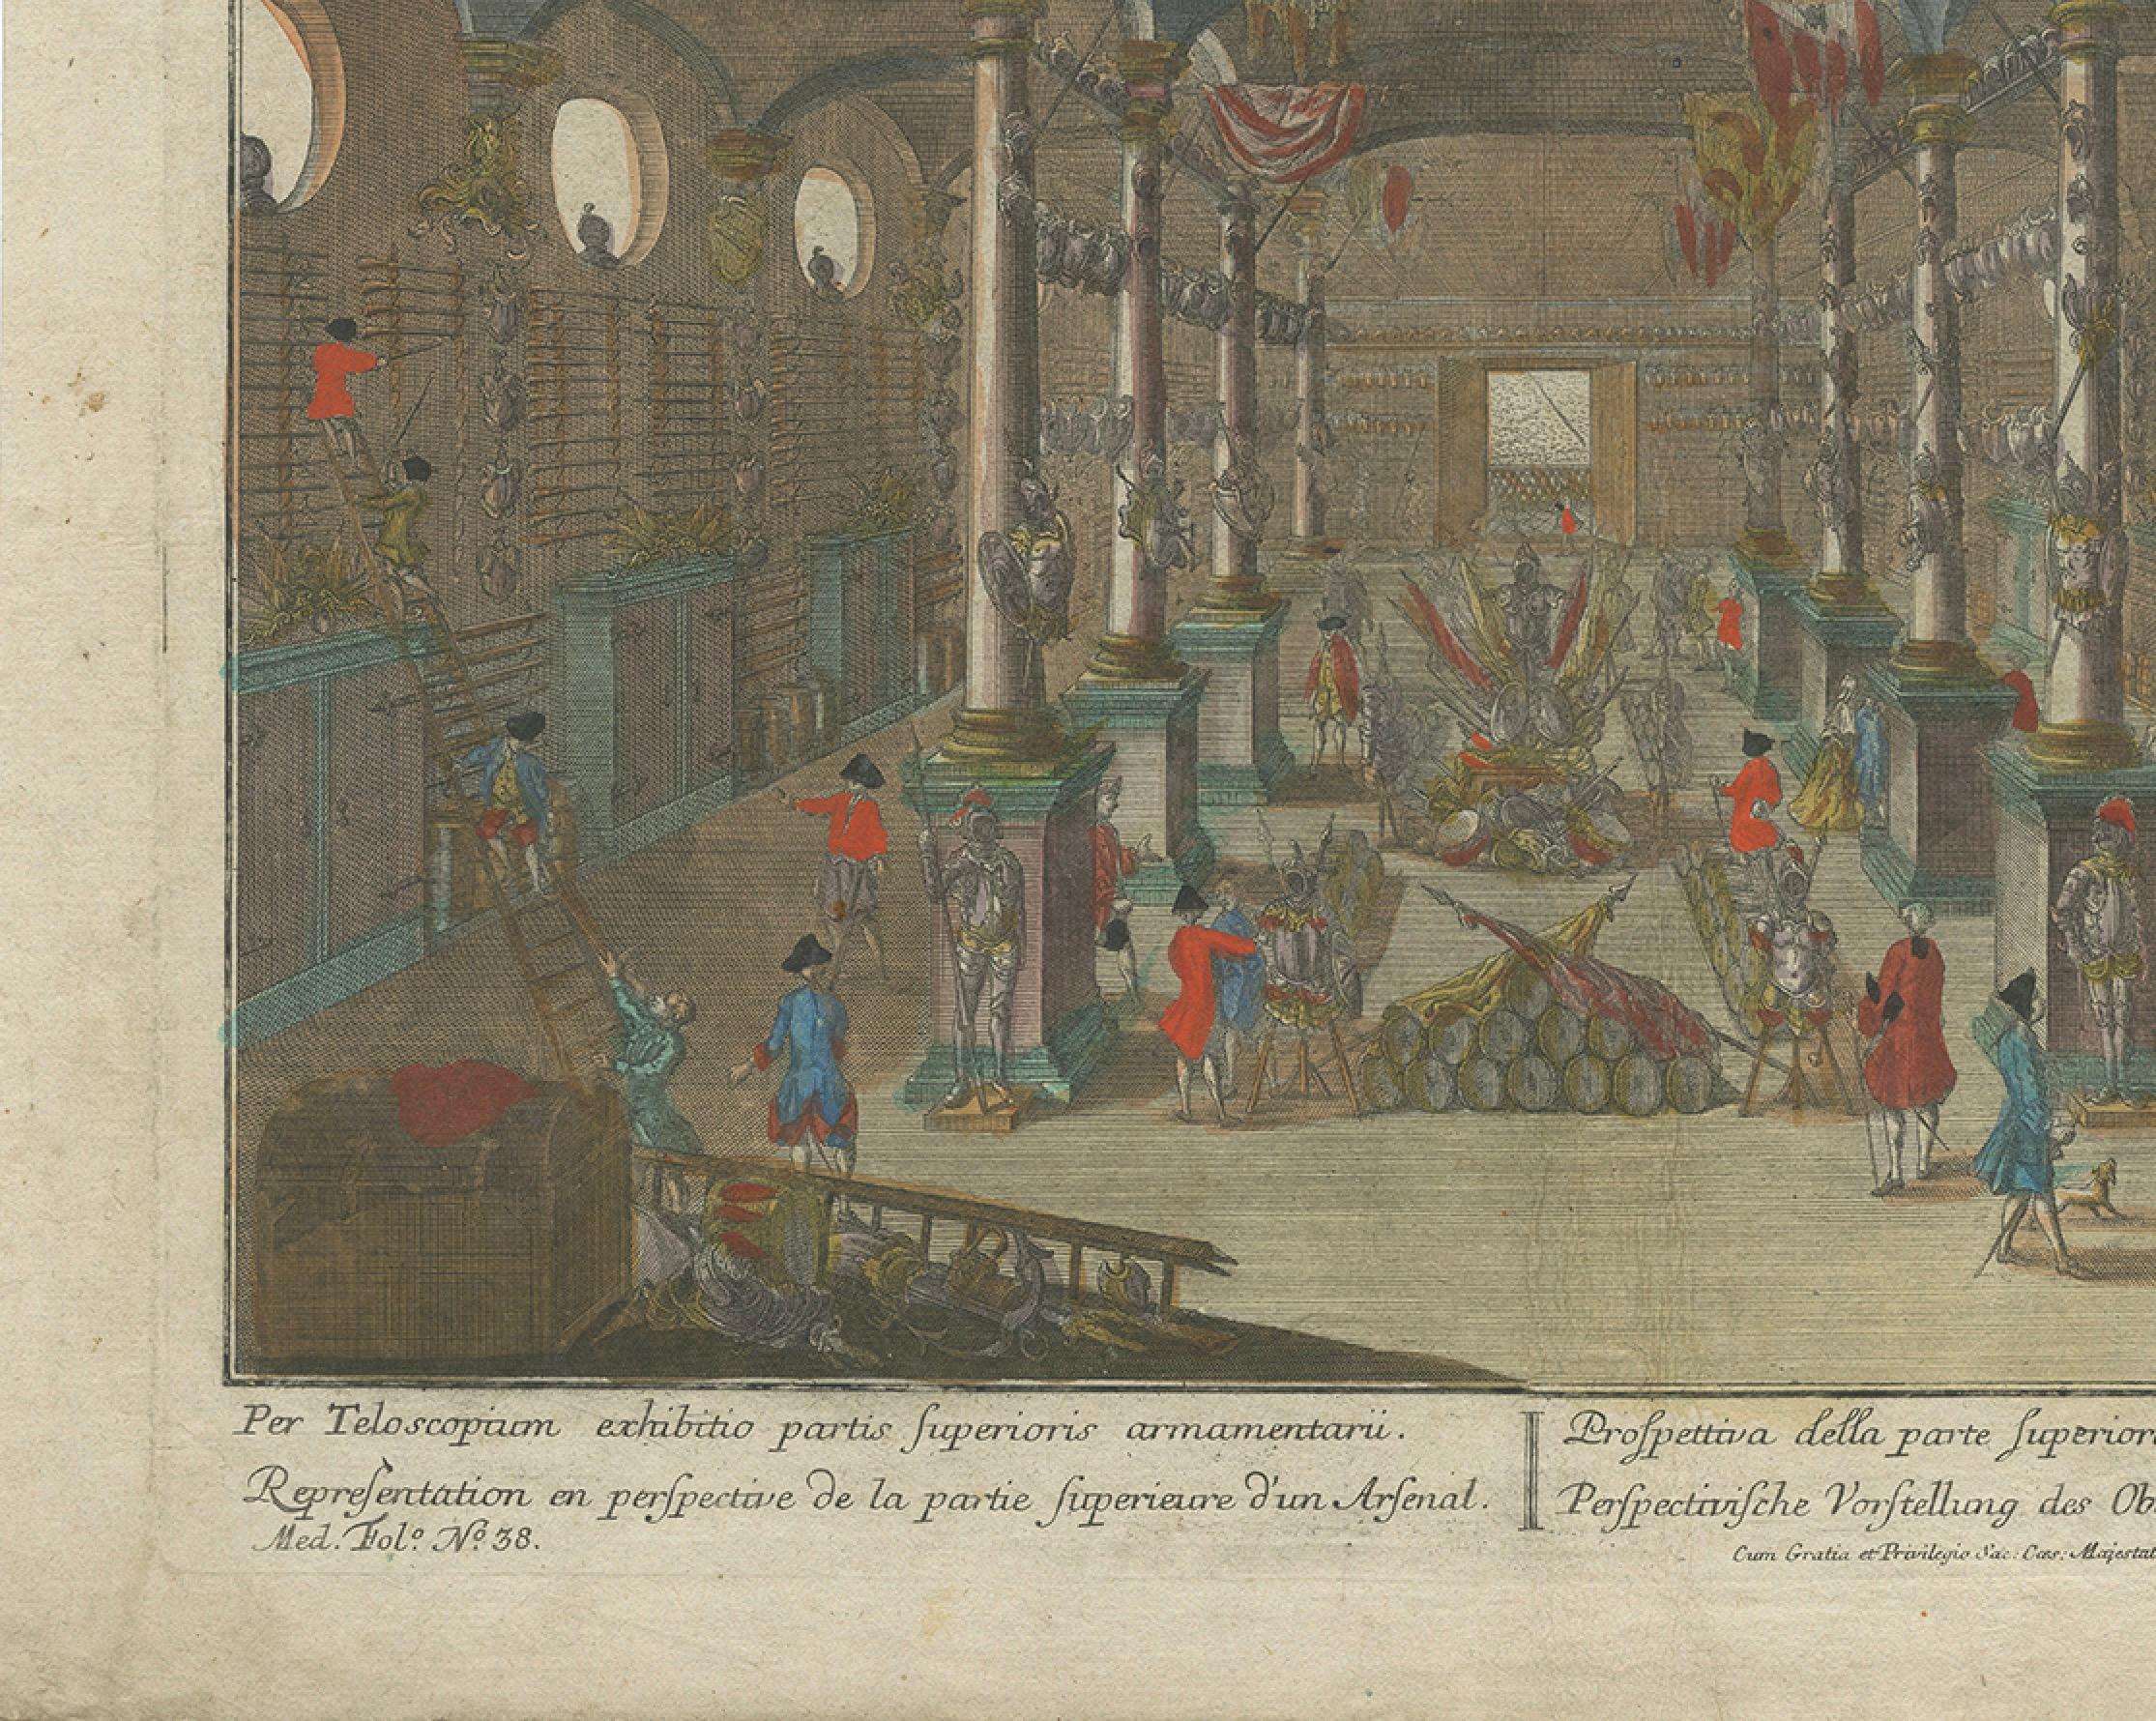 Per Teloscopium exhibitio partis ſuperioris armamentarii.
Repreſentation en perſpective de la partie ſuperieure d'un Arſenal.
Med. Fol.º Nº 38.
Proſpettiva della parte ſuperior
Perſpectiviſche Vorſtellung des Ob
Cum Gratia et Privilegio Sac: Cæs: Majestat